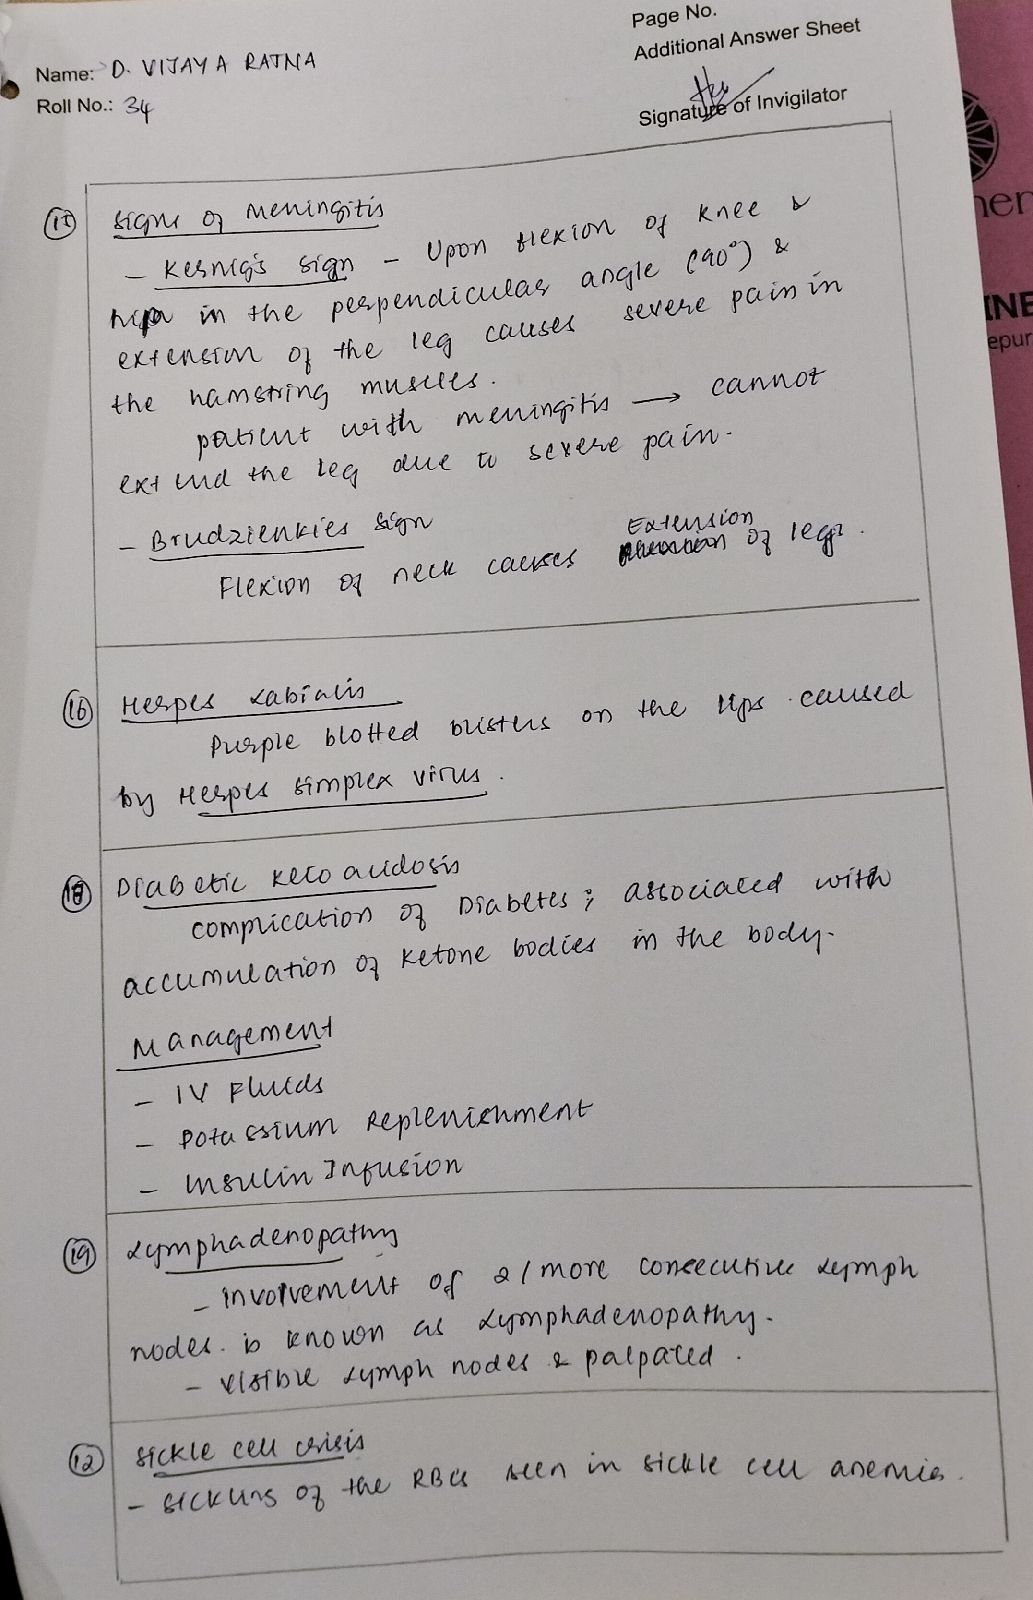 Page No.
Additional Answer Sheet
Name: D. VIJAYA RATNA
Roll No.: 34
Signature of Invigilator
15 Signs of Meningitis
- Kernig's sign - Upon flexion of knee &
hip in the perpendicular angle (90°) &
extension of the leg causes severe pain in
the hamstring muscles.
patient with meningitis → cannot
extend the leg due to severe pain.
- Brudzienkies sign
Flexion of neck causes Extension of legs.
16 Herpes Labialis
Purple blotted blisters on the lips caused
by Herpes simplex virus.
18 Diabetic keto acidosis
complication of Diabetes; associated with
accumulation of ketone bodies in the body.
Management
- IV Fluids
- Potassium Replenishment
- Insulin Infusion
19 Lymphadenopathy
- involvement of 2/more consecutive lymph
nodes is known as Lymphadenopathy.
- visible lymph nodes & palpated.
12 Sickle cell crisis
- sickling of the RBCs seen in sickle cell anemia.
INE
epur